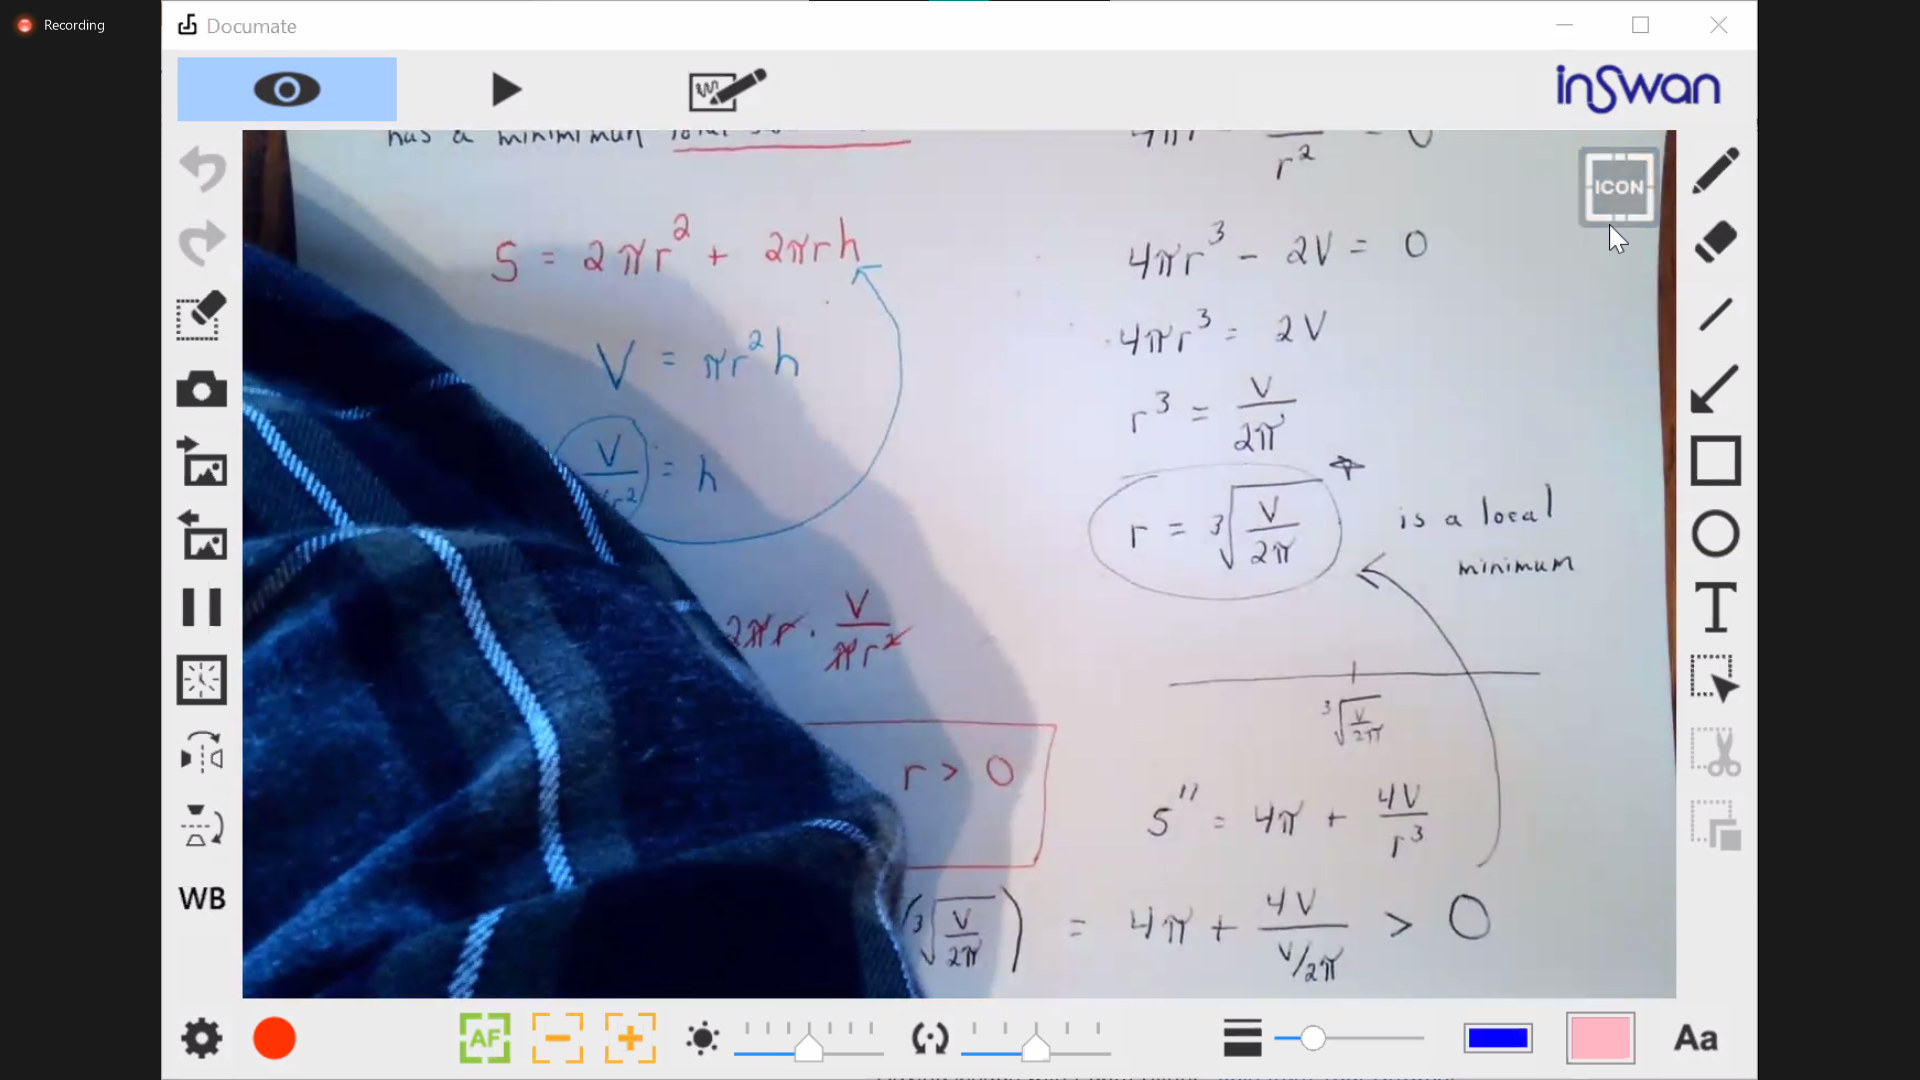 Recording
Documate
inSwan
has a minimimun total
S = 2πr² + 2πrh
V = πr²h
V/πr² = h
2πr · V/πr²
r > 0
(³√(V/2π))
4πr
r² = 0
4πr³ - 2V = 0
4πr³ = 2V
r³ = V/2π
r = ³√(V/2π)
is a local
minimum
³√(V/2π)
S'' = 4π + 4V/r³
= 4π + 4V/(V/2π) > 0
ICON
WB
AF
T
Aa